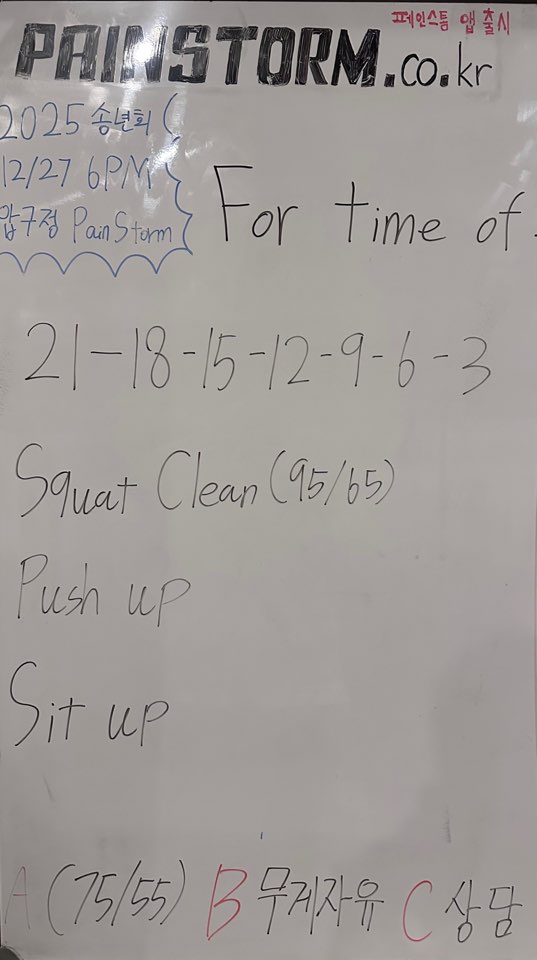 페인스톰 앱 출시
PAINSTORM.co.kr
2025 송년회
12/27 6PM
압구정 PainStorm
For time of.
21-18-15-12-9-6-3
Squat Clean (95/65)
Push up
Sit up
A (75/55) B 무게자유 C 상담